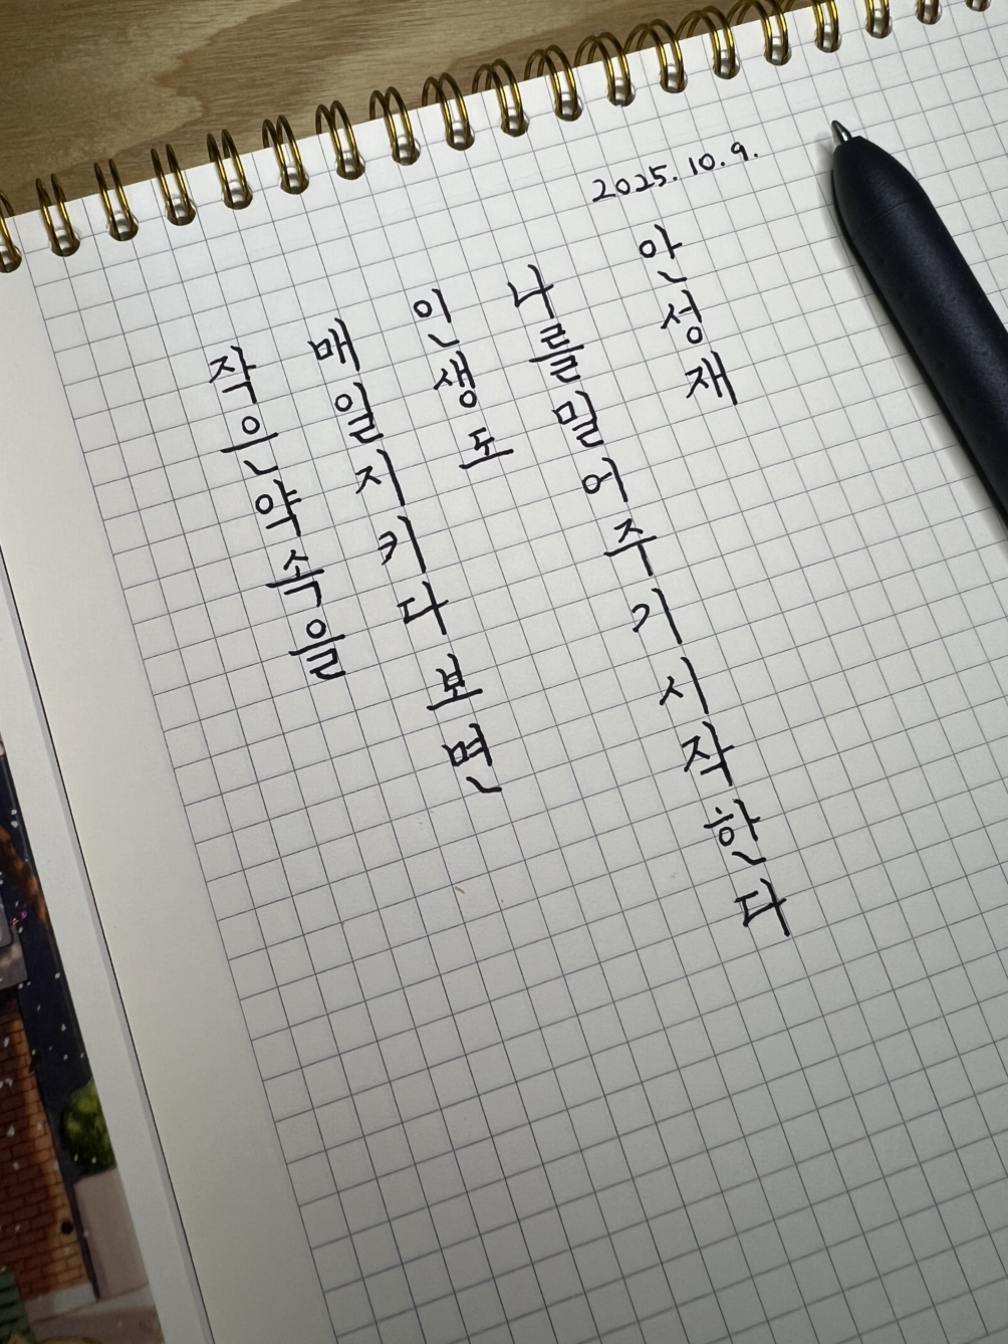 2025.10.9.
작은약속을
매일지키다보면
인생도
나를밀어주기시작한다
안성재